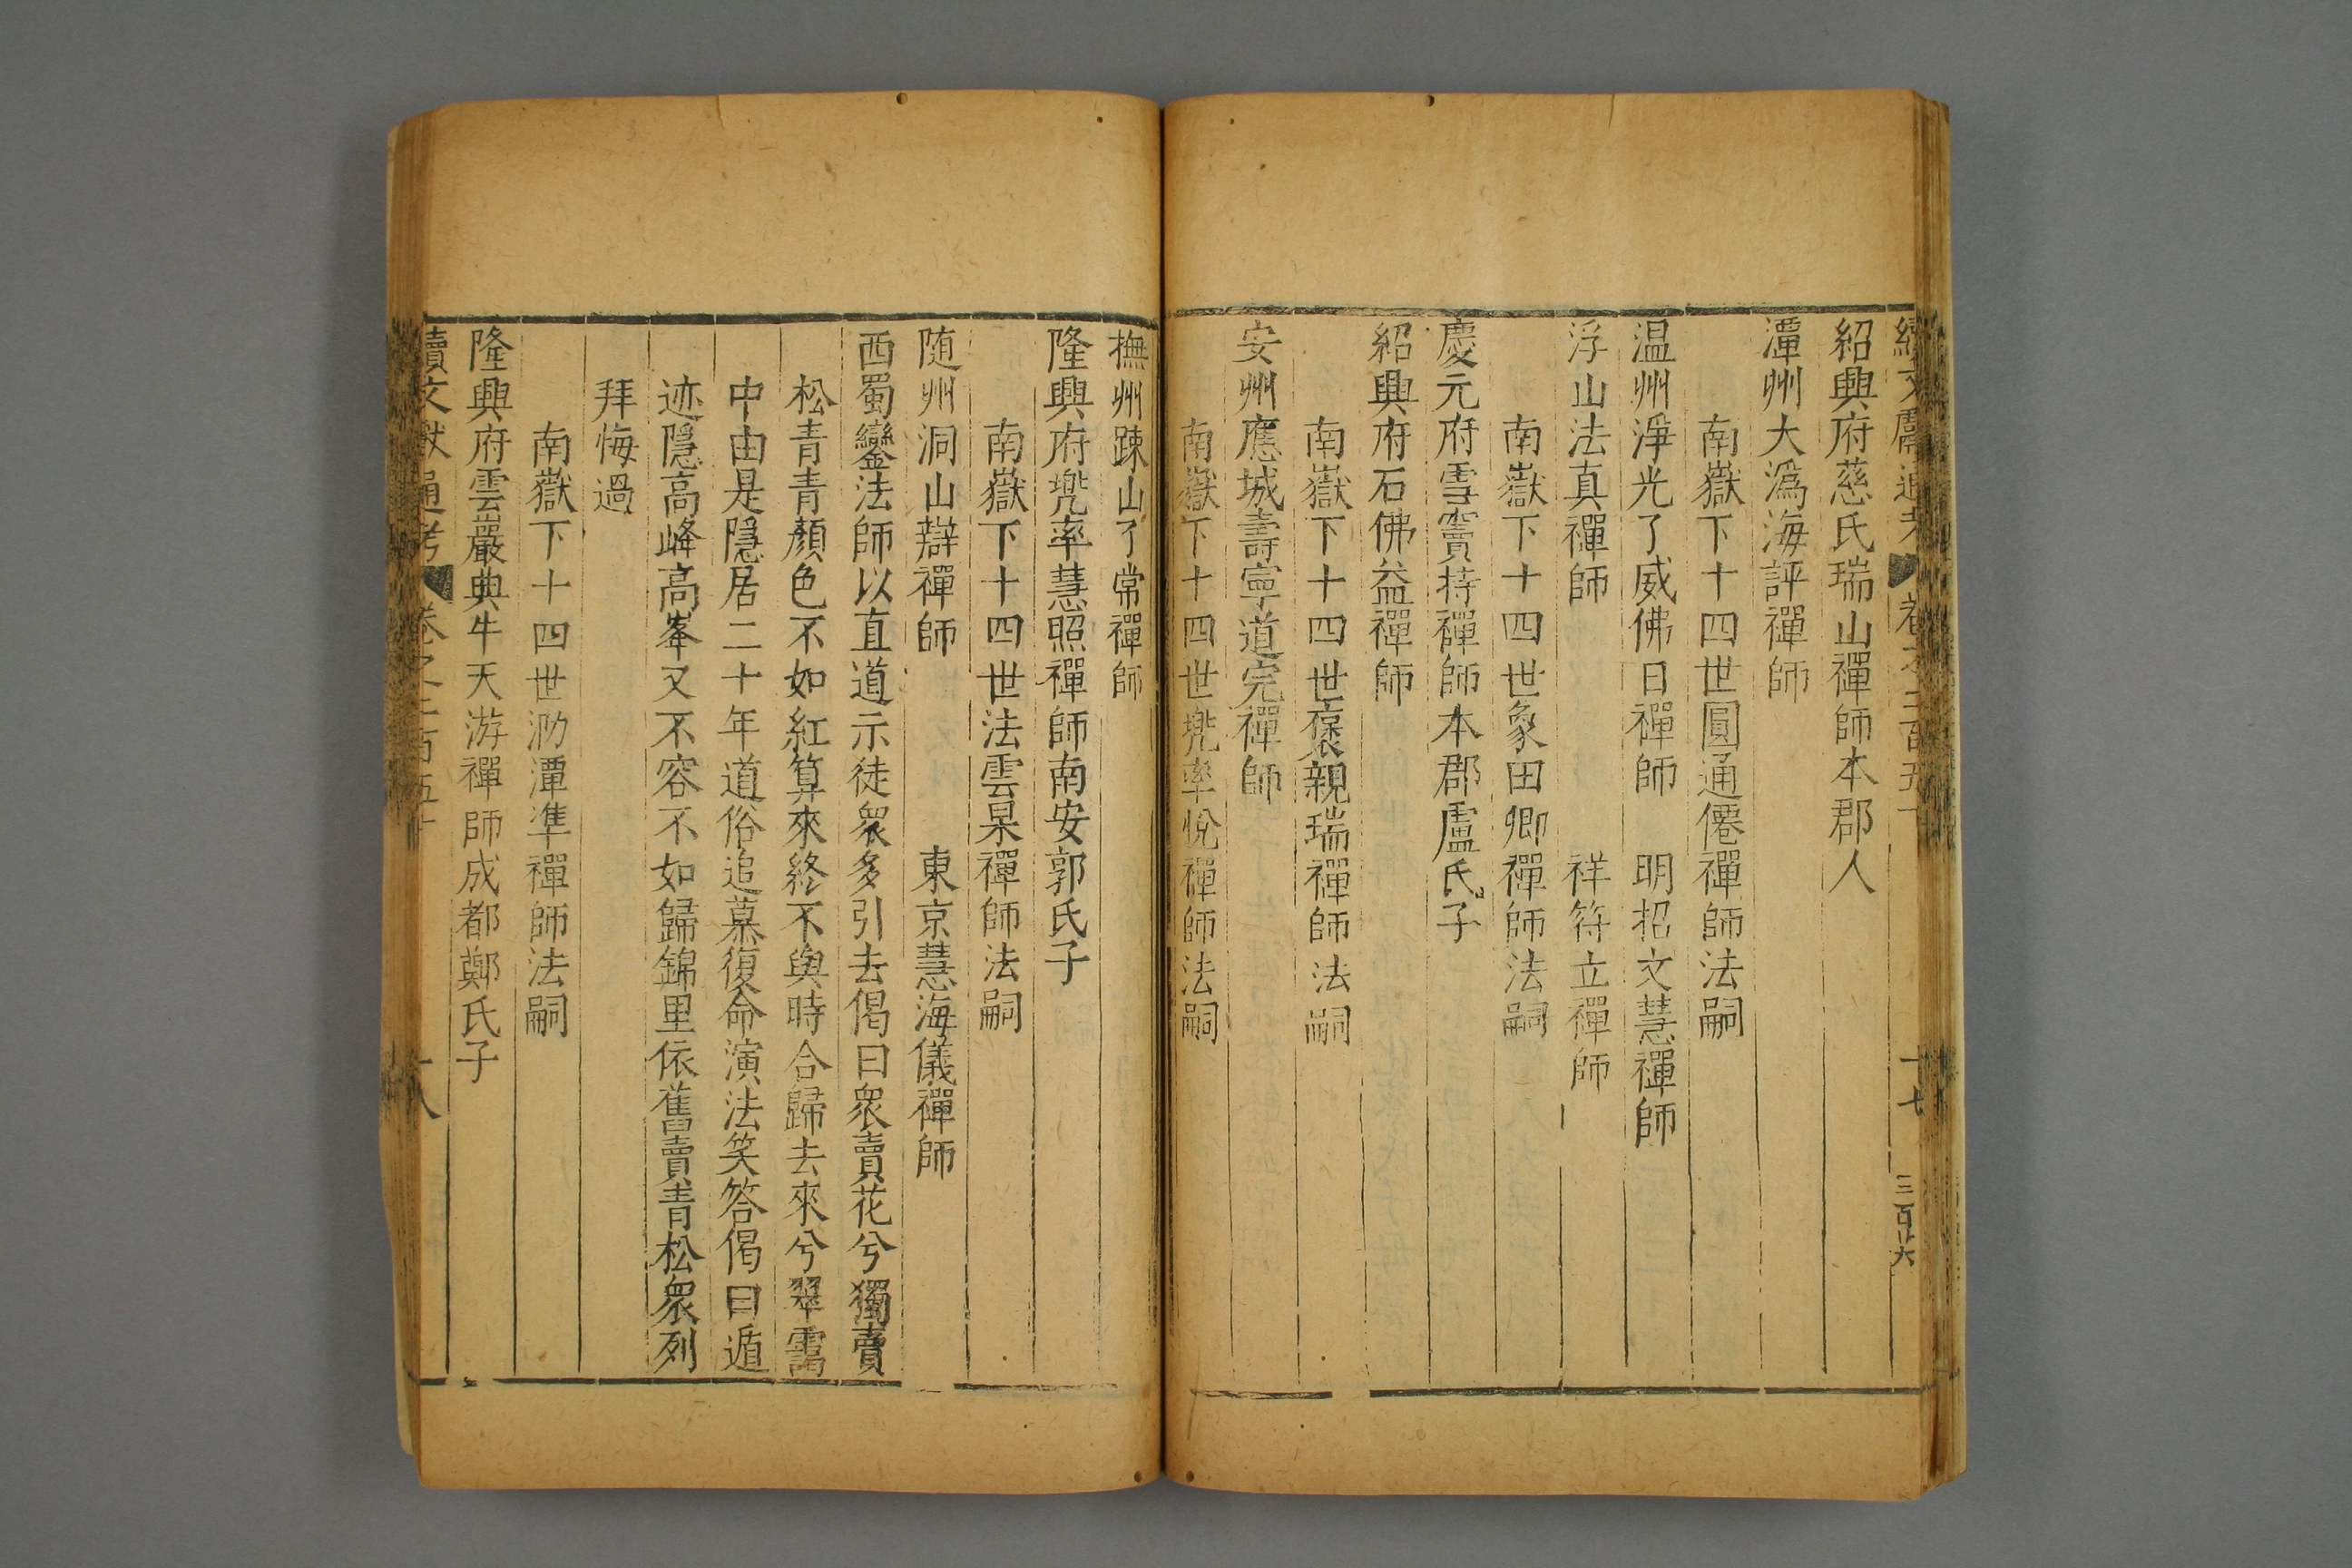 續文獻通考 卷之二百五十 十七 三百六
紹興府慈氏瑞山禪師本郡人
潭州大溈海評禪師
南嶽下十四世圓通僊禪師法嗣
温州淨光了威佛日禪師 明招文慧禪師
浮山法真禪師 祥符立禪師
南嶽下十四世象田卿禪師法嗣
慶元府雪竇持禪師本郡盧氏子
紹興府石佛益禪師
南嶽下十四世褒親瑞禪師法嗣
安州應城壽寧道完禪師
南嶽下十四世兜率悅禪師法嗣
撫州踈山了常禪師
隆興府兜率慧照禪師南安郭氏子
南嶽下十四世法雲杲禪師法嗣
随州洞山辯禪師 東京慧海儀禪師
西蜀鑾法師以直道示徒衆多引去偈曰衆賣花兮獨賣
松青青顏色不如紅算來終不與時合歸去來兮翠靄
中由是隱居二十年道俗追慕復命演法笑答偈曰遁
迹隱高峰高峯又不容不如歸錦里依舊賣青松衆列
拜悔過
南嶽下十四世泐潭準禪師法嗣
隆興府雲巖典牛天游禪師成都鄭氏子
續文獻通考 卷之二百五十 十八